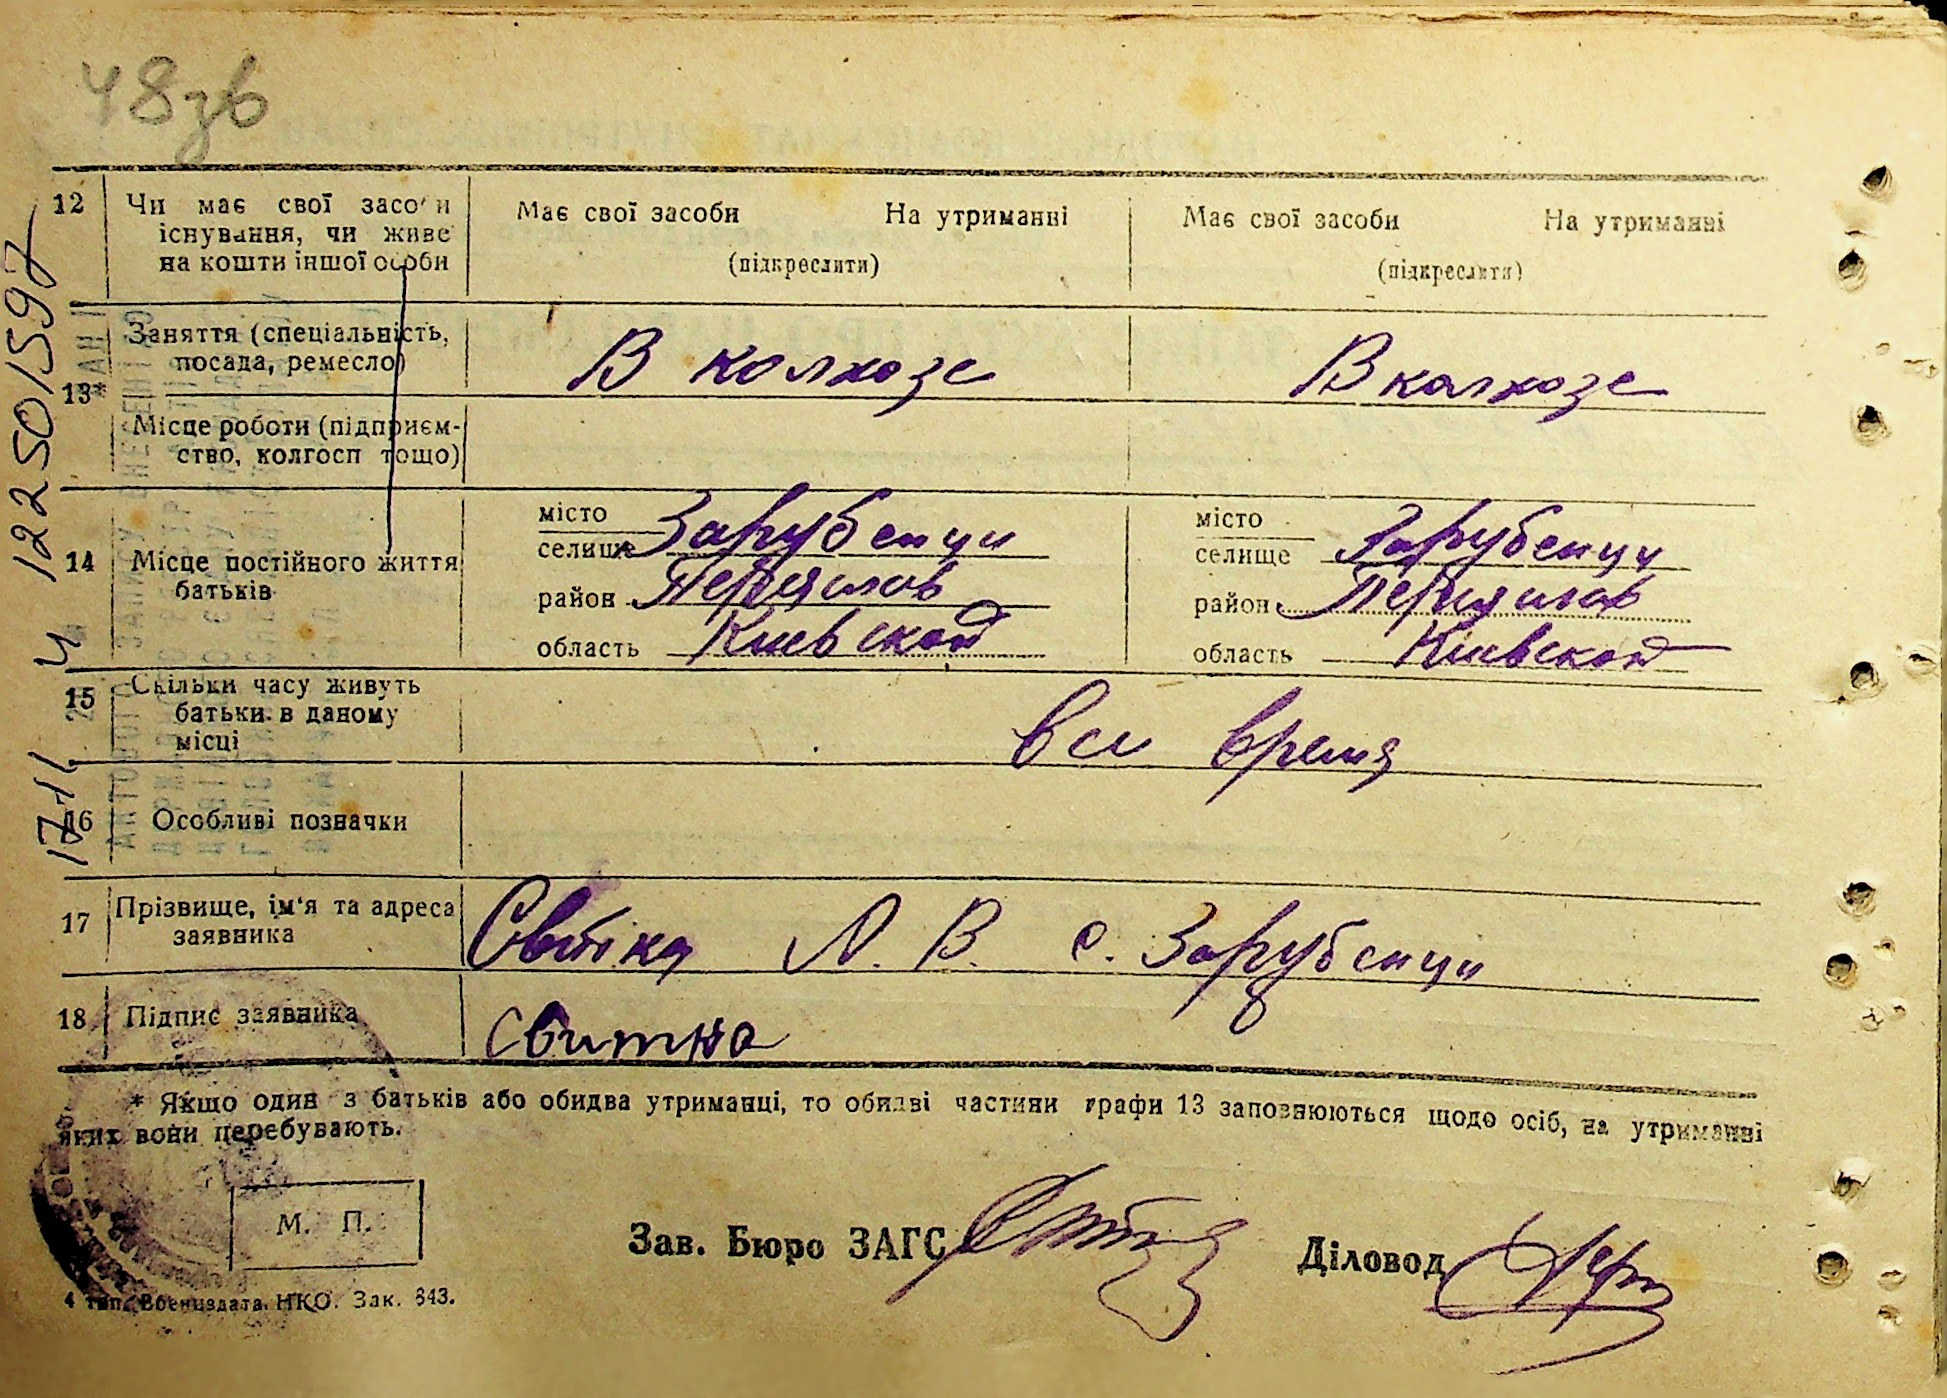 48зв
12 Чи має свої засоби Має свої засоби На утриманні Має свої засоби На утриманні
існування, чи живе
на кошти іншої особи (підкреслити) (підкреслити)
13* Заняття (спеціальність,
посада, ремесло) В колхозе В колхозе
Місце роботи (підприєм-
ство, колгосп тощо)
14 Місце постійного життя
батьків
місто
селище Зарубенци
район Переяслов
область Киевской
місто
селище Зарубенци
район Переяслов
область Киевской
15 Скільки часу живуть
батьки в даному
місці все время
16 Особливі позначки
17 Прізвище, ім'я та адреса
заявника Світка Л. В. с. Зарубенци
18 Підпис заявника Свитка
* Якщо один з батьків або обидва утриманці, то обидві частини графи 13 заповнюються щодо осіб, на утриманні
яких вони перебувають.
М. П.
Зав. Бюро ЗАГС
Діловод
4 тип. Воениздата НКО. Зак. 843.
122501597